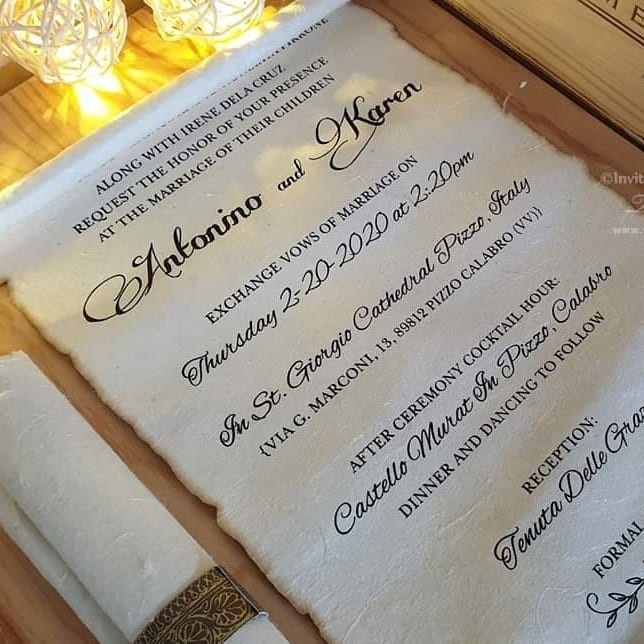 ALONG WITH IRENE DELA CRUZ
REQUEST THE HONOR OF YOUR PRESENCE
AT THE MARRIAGE OF THEIR CHILDREN
Antonino and Karen
EXCHANGE VOWS OF MARRIAGE ON
Thursday 2-20-2020 at 2:20pm
In St. Giorgio Cathedral Pizzo, Italy
{VIA G. MARCONI, 13, 89812 PIZZO CALABRO (VV)}
AFTER CEREMONY COCKTAIL HOUR:
Castello Murat In Pizzo, Calabro
DINNER AND DANCING TO FOLLOW
RECEPTION:
Tenuta Delle Gra
FORMAL
©Invit
www.